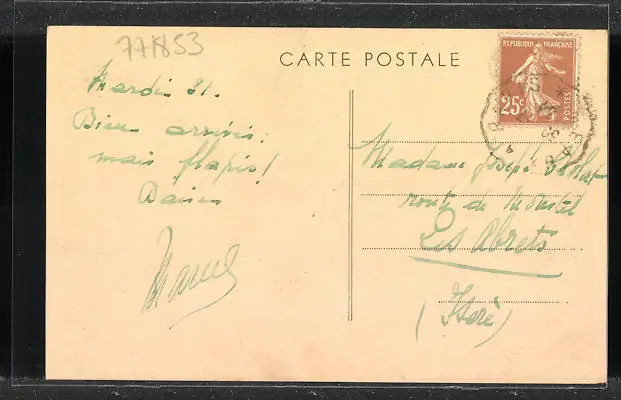 771853
CARTE POSTALE
REPUBLIQUE FRANÇAISE
25c
POSTES
Mardi 31.
Bien arrivés
mais flapis!
Baisers
Madame Joseph
route de
Les Abrets
(Isère)